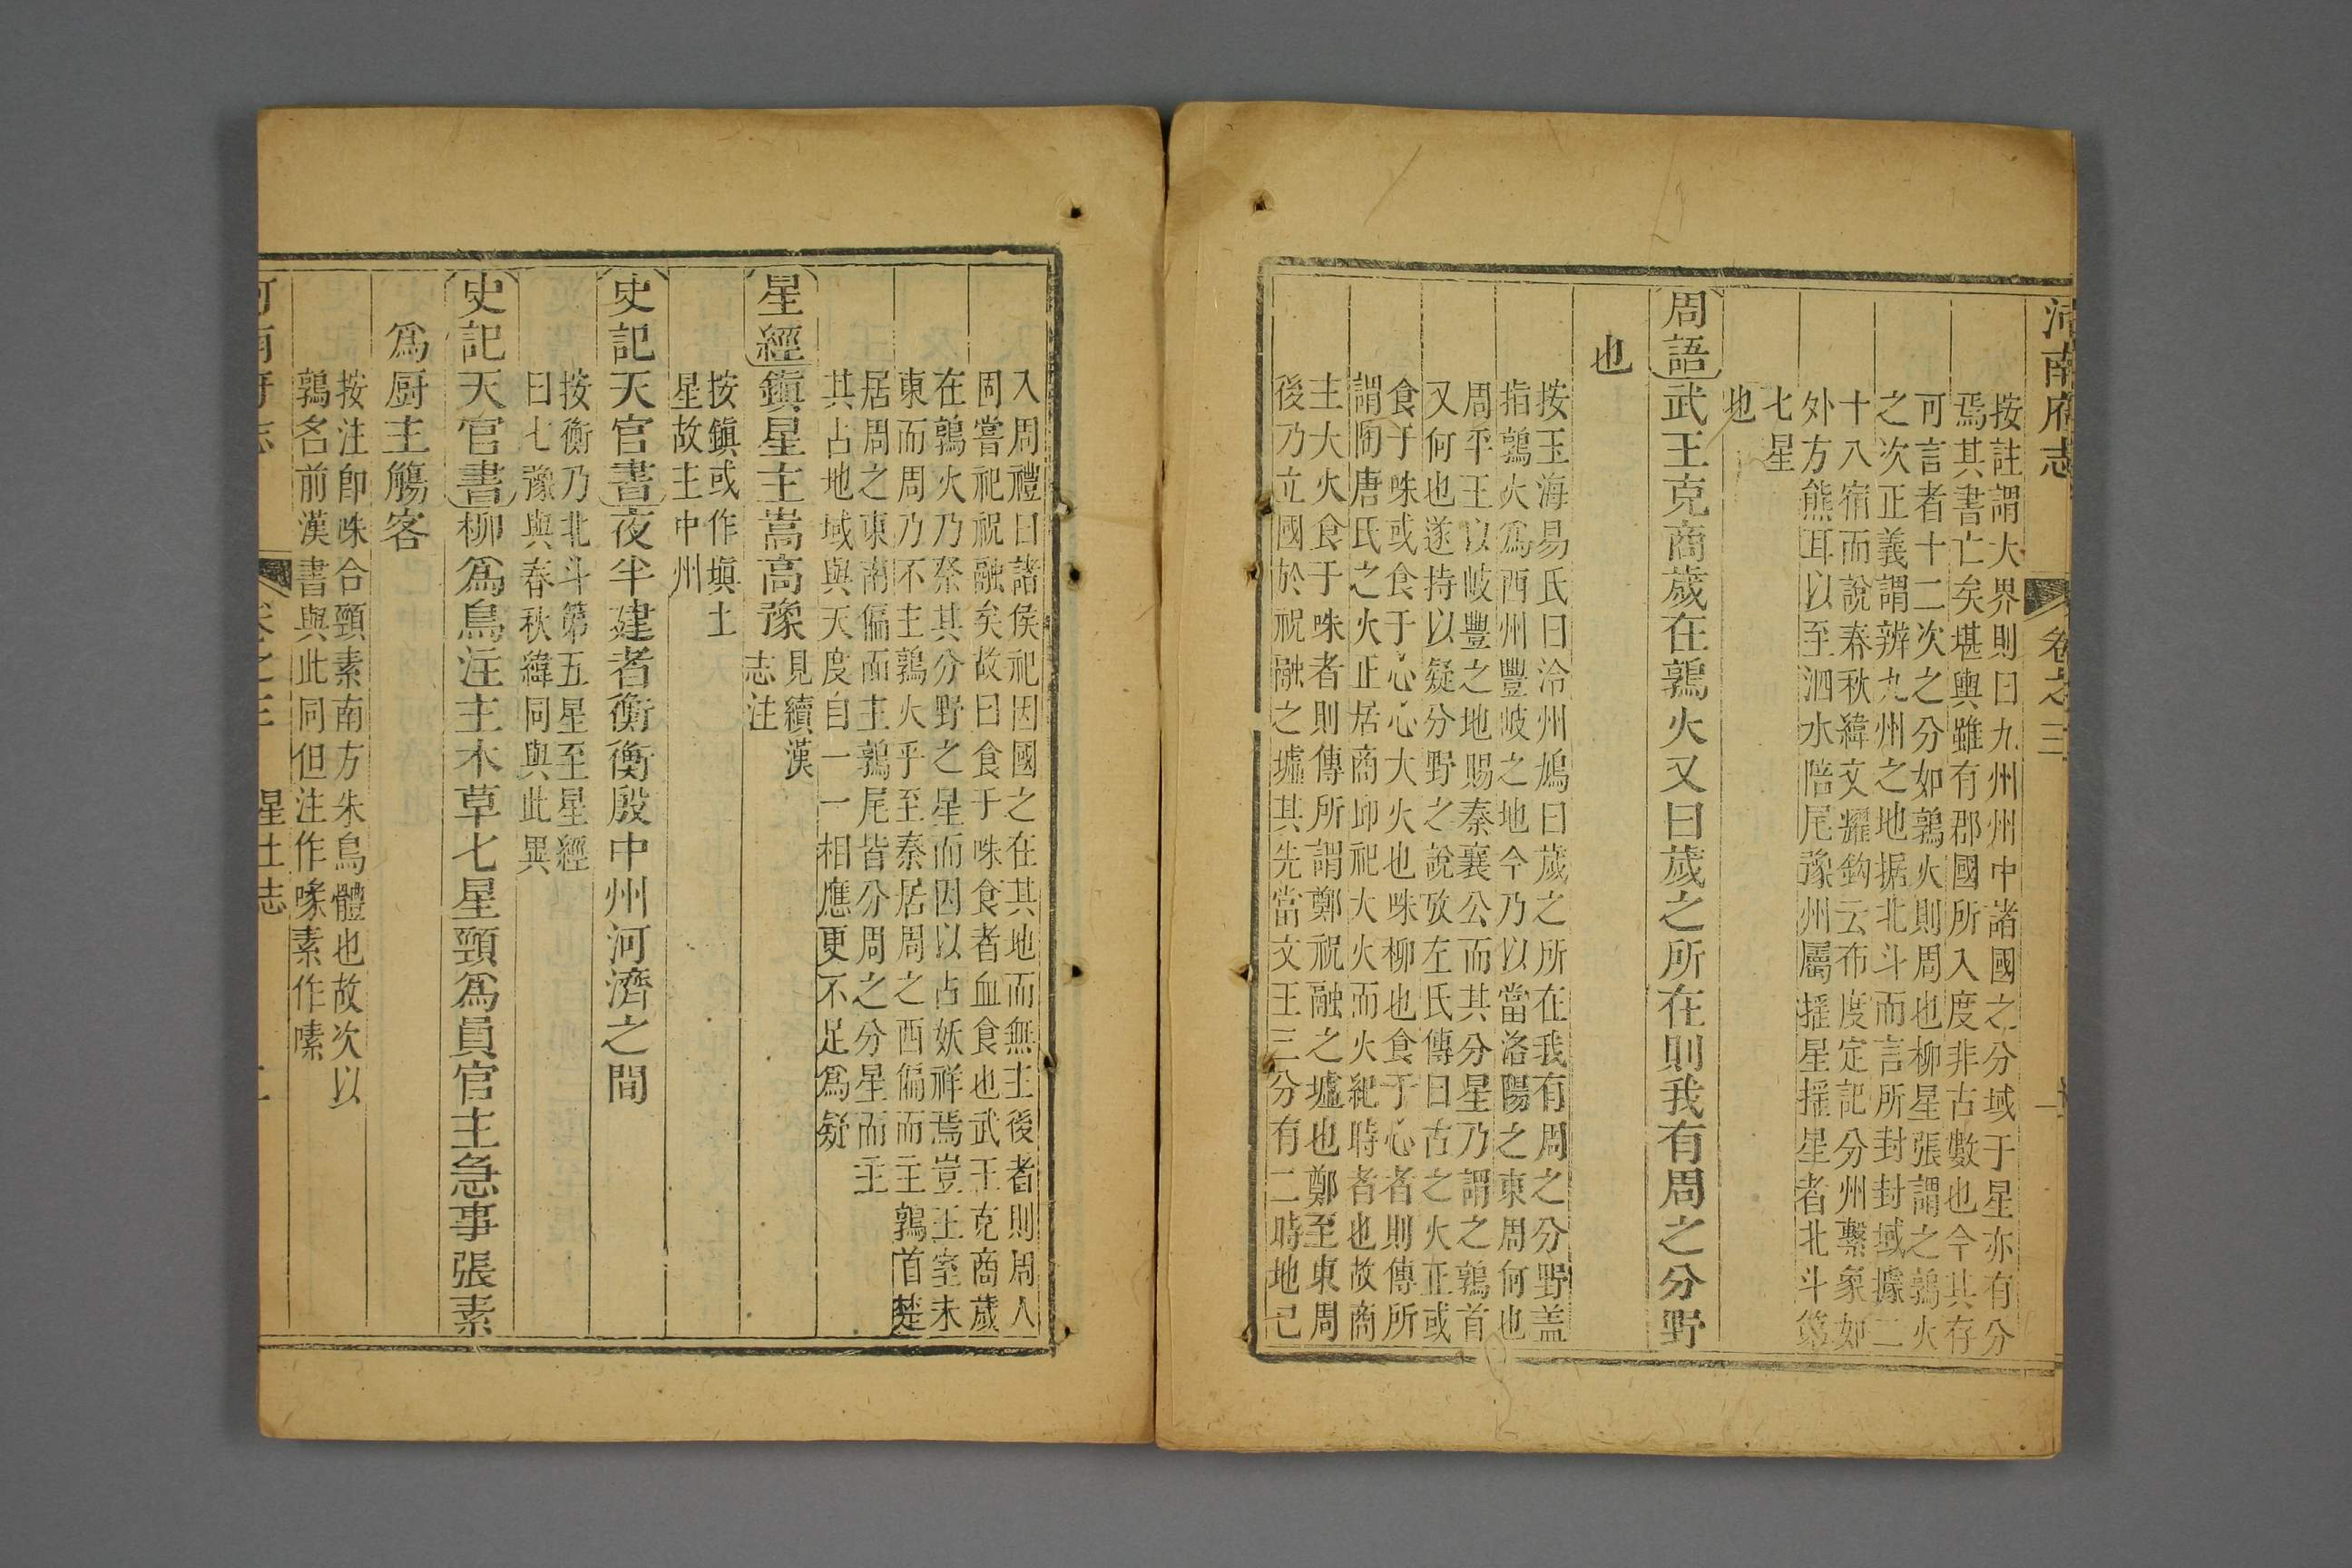 河南府志
卷之三
按註謂大界則曰九州州中諸國之分域于星亦有分
焉其書亡矣堪輿雖有郡國所入度非古數也今其存
可言者十二次之分如鶉火則周也柳星張謂之鶉火
之次正義謂辨九州之地据北斗而言所封封域據二
十八宿而說春秋緯文耀鈎云布度定記分州繫象如
外方熊耳以至泗水陪尾豫州屬揺星揺星者北斗第
七星
地
周語武王克商歲在鶉火又曰歲之所在則我有周之分野
也
按玉海易氏曰泠州鳩曰歲之所在我有周之分野盖
指鶉火爲西州豐岐之地今乃以當洛陽之東周何也
周平王以岐豐之地賜秦襄公而其分星乃謂之鶉首
又何也遂持以疑分野之說攷左氏傳曰古之火正或
食于咮或食于心心大火也咮柳也食于心者則傳所
謂陶唐氏之火正居商邱祀大火而火紀時者也故商
主大火食于咮者則傳所謂鄭祝融之墟也鄭至東周
後乃立國於祝融之墟其先當文王三分有二時地已
入周禮曰諸侯祀因國之在其地而無主後者則周人
固嘗祀祝融矣故曰食于咮食者血食也武王克商歲
在鶉火乃祭其分野之星而因以占妖祥焉豈王室未
東而周乃不主鶉火乎至秦居周之西偏而主鶉首楚
居周之東南偏而主鶉尾皆分周之分星而主
其占地域與天度自一一相應更不足爲疑
星經鎮星主嵩高豫見續漢
志注
按鎮或作塡土
星故主中州
史記天官書夜半建者衡衡殷中州河濟之間
按衡乃北斗第五星至星經
曰七豫與春秋緯同與此異
史記天官書柳爲鳥注主木草七星頸爲員官主急事張素
爲厨主觴客
按注即咮合頸素南方朱鳥體也故次以
鶉名前漢書與此同但注作喙素作嗉
河南府志
卷之三
星土志